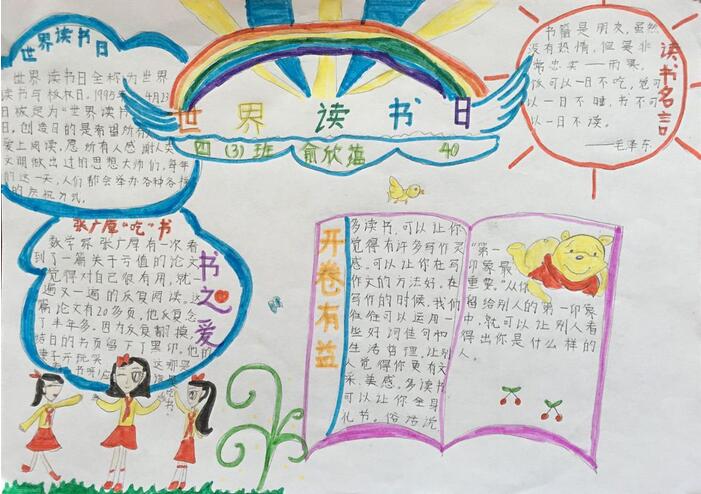 世界读书日
世界读书日全称为世界
读书与版权日，1995年，4月23
日被定为“世界读书
日，创造目的是希望所有
爱上阅读，愿所有人感谢人类
文明做出过的思想大师们，每年
的这一天，人们都会举办各种各样
的庆祝方式。
世界读书日
四（3）班 俞欣蕴 40
读书名言
书籍是朋友，虽然
没有热情，但是非
常忠实——雨果。
饭可以一日不吃，觉可
以一日不睡，书不可
以一日不读。
——毛泽东
张广厚“吃”书
书之爱
数学家张广厚有一次看
到了一篇关于亏值的论文
觉得对自己很有用，就一
遍又一遍的反复阅读。这
篇论文有20多页，他反复念
了半年多。因为反复翻摸，
洁白的书页留下了黑印，他的
妻子开玩笑
这哪是
开卷有益
多读书，可以让你
觉得有许多写作灵
感。可以让你在写
作文的方法好。在
写作的时候，我们
往往可以运用一
些好词佳句和
生活哲理，让别
人觉得你更有文
采，美感。多读书
可以让你全身
礼节。俗话说
“第一
印象最
重要。”从你
留给别人的第一印象
中，就可以让别人看
得出你是什么样的
人。